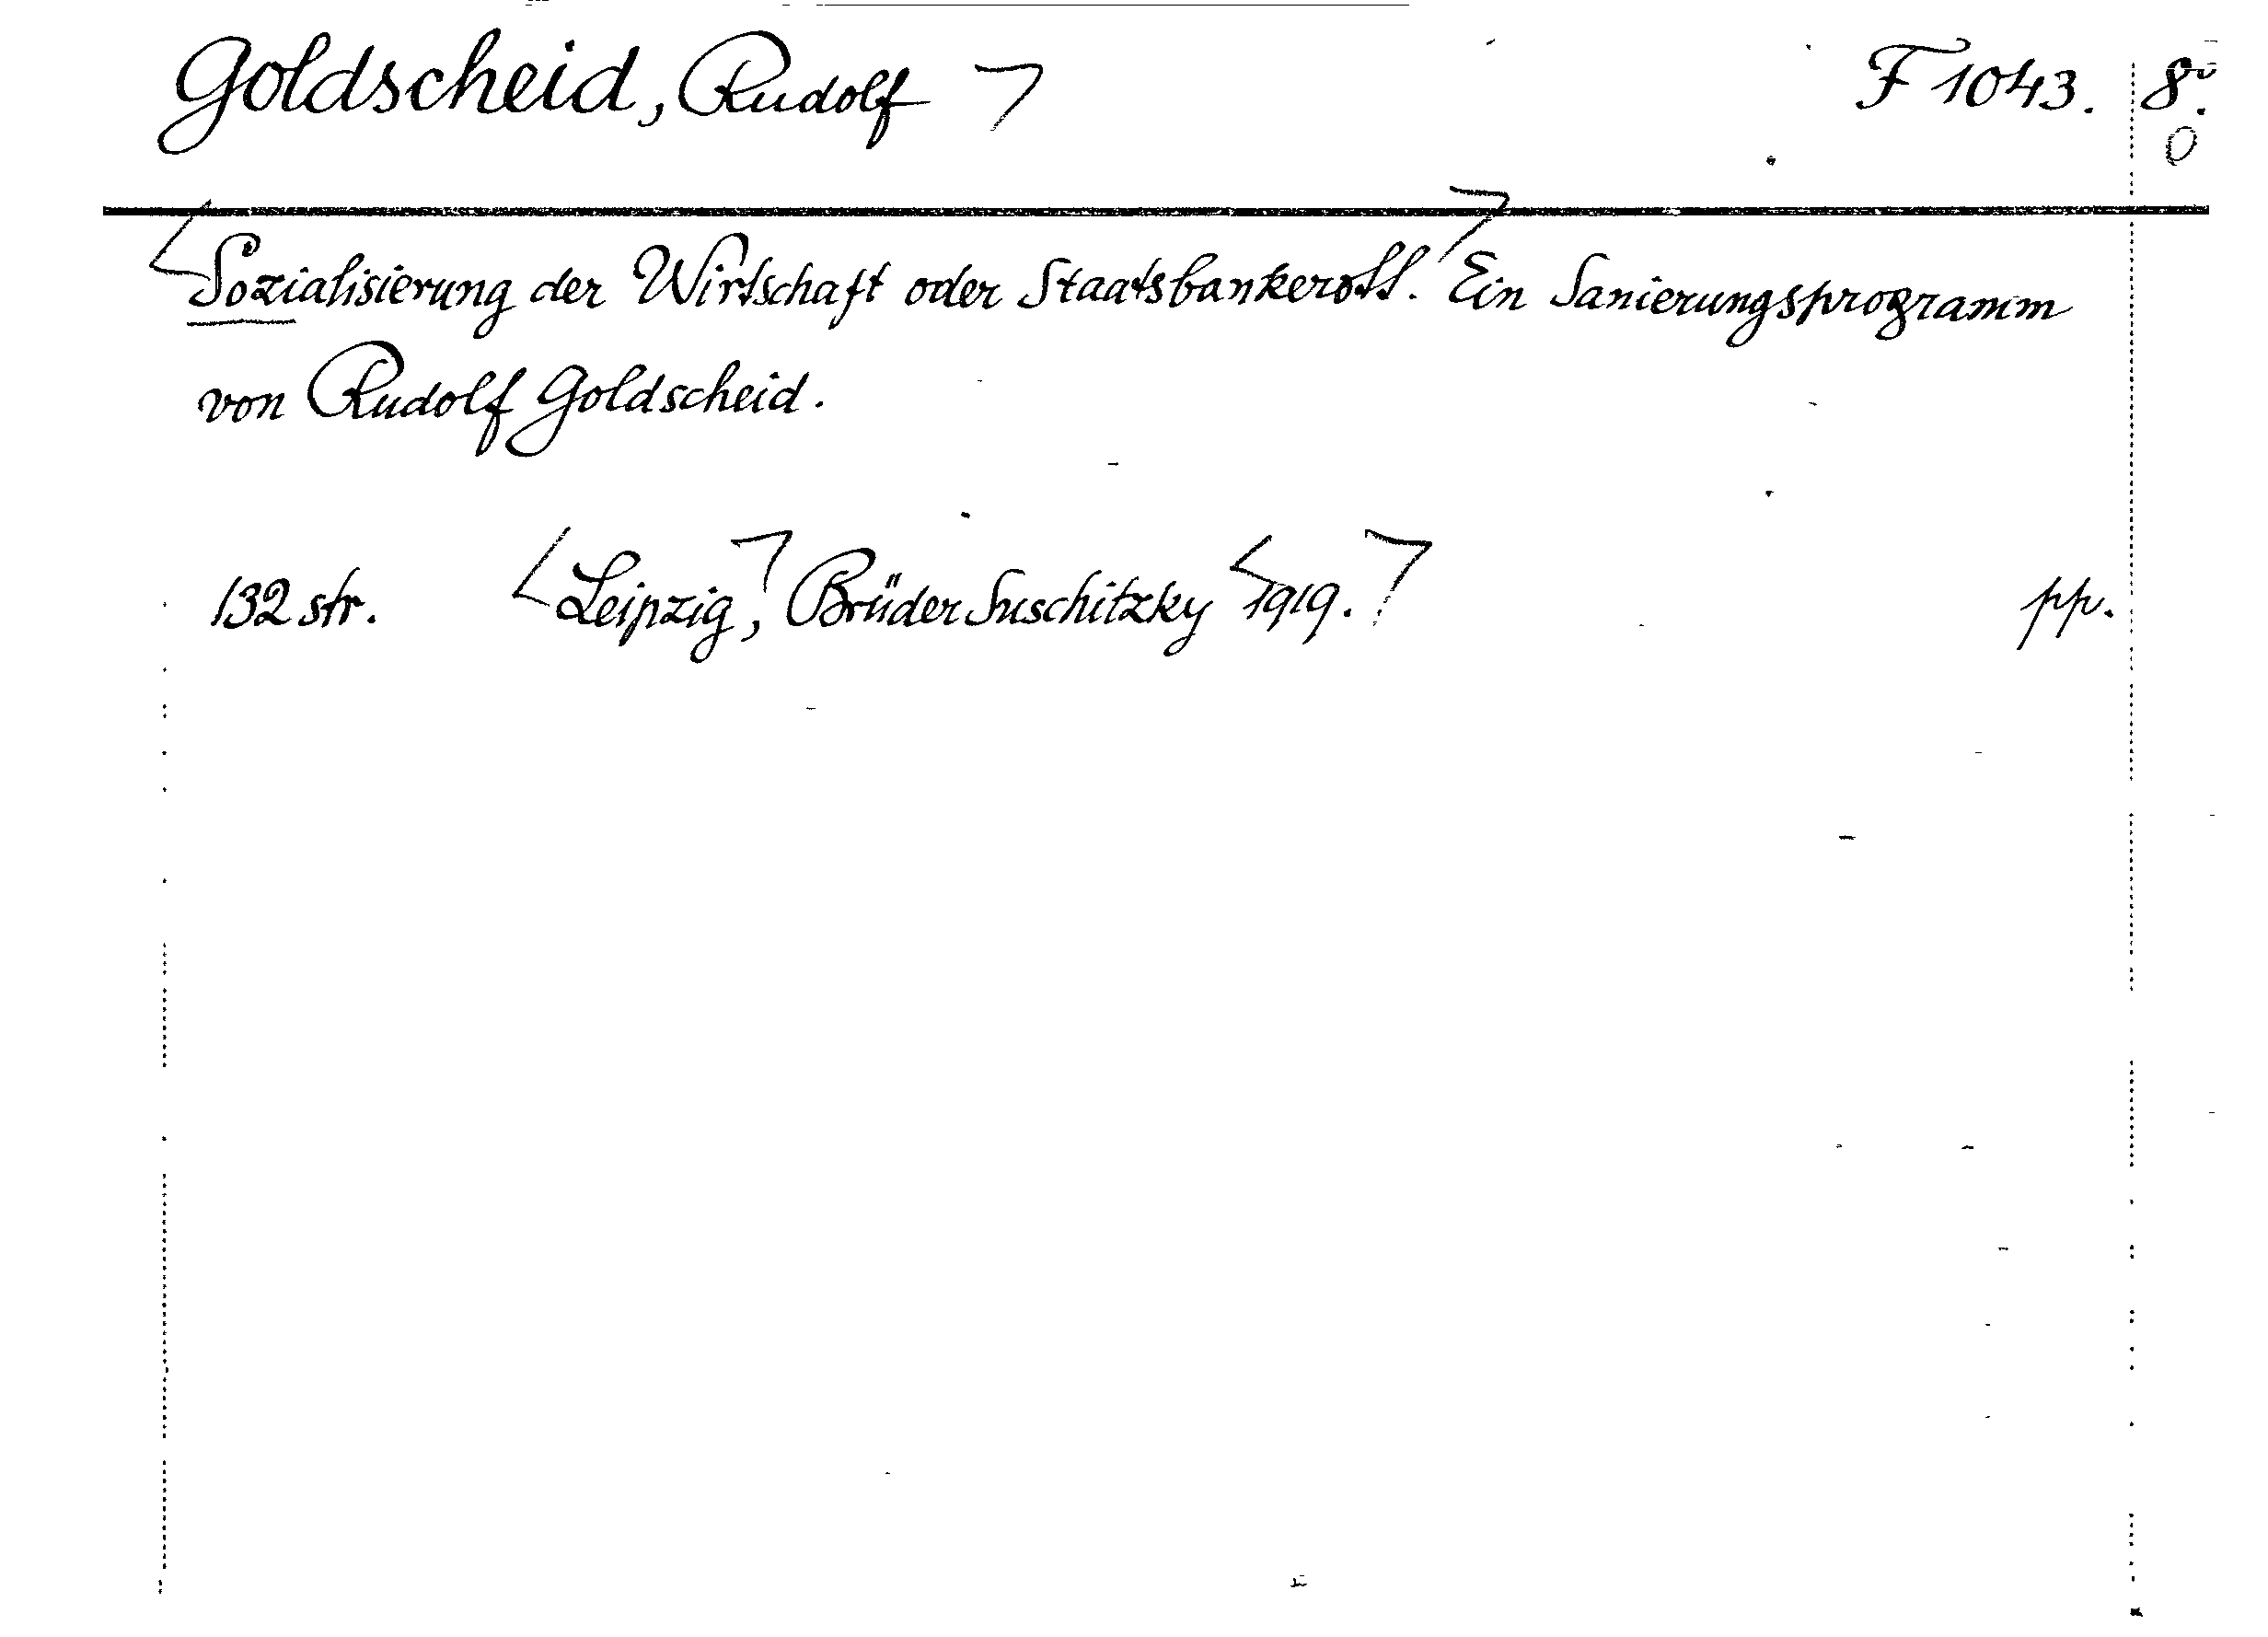 Goldscheid, Rudolf F 1043. 8°.
Sozialisierung der Wirtschaft oder Staatsbankerott. Ein Sanierungsprogramm
von Rudolf Goldscheid.
132 str. Leipzig, Brüder Suschitzky 1919. pp.